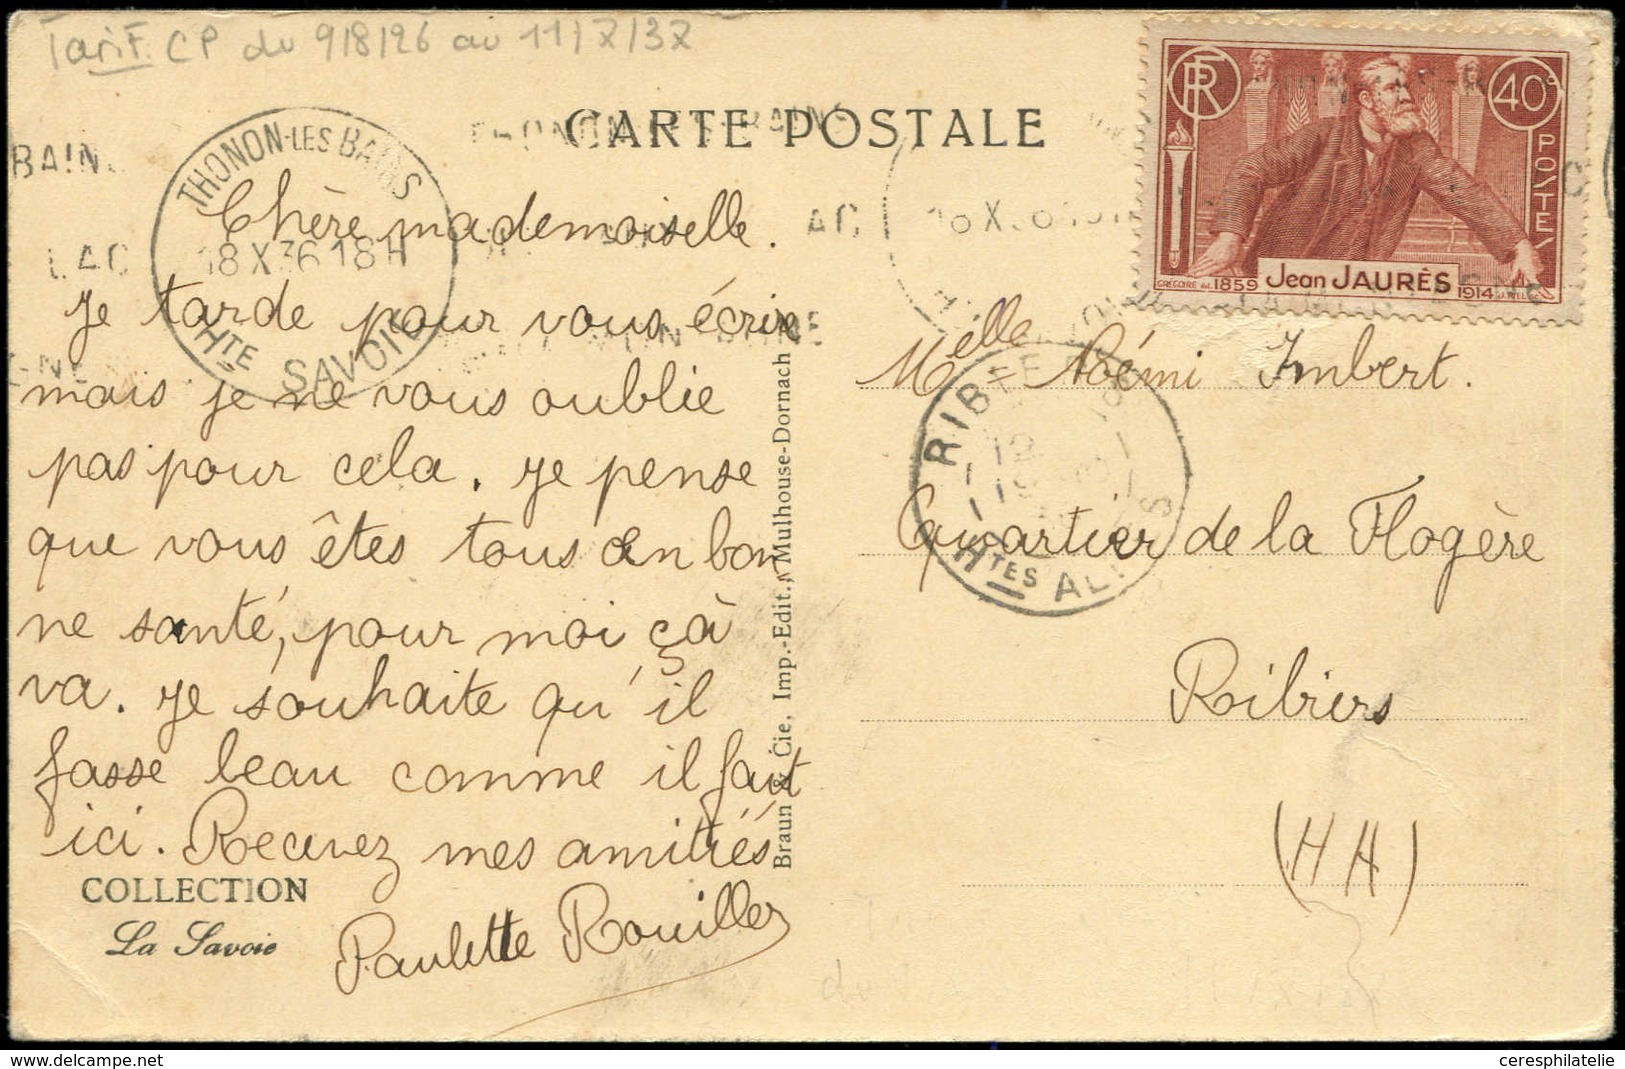 Tarif CP du 9/8/26 au 11/7/37
CARTE POSTALE
THONON-LES BAINS
18 X 36 18 H
HTE SAVOIE
BAIN
LAC
RF
40c
POSTE
GREGOIRE del. 1859 Jean JAURÈS 1914
Chère mademoiselle.
Je tarde pour vous écrire
mais je ne vous oublie
pas pour cela. Je pense
que vous êtes tous en bon
ne santé, pour moi çà
va. Je souhaite qu'il
fasse beau comme il fait
ici. Recevez mes amitiés
Paulette Rouiller
COLLECTION
La Savoie
Braun & Cie, Imp.-Edit., Mulhouse-Dornach
Melle Noémi Imbert.
Quartier de la Flogère
Ribiers
(H A)
HTES ALPES
ceresphilatelie